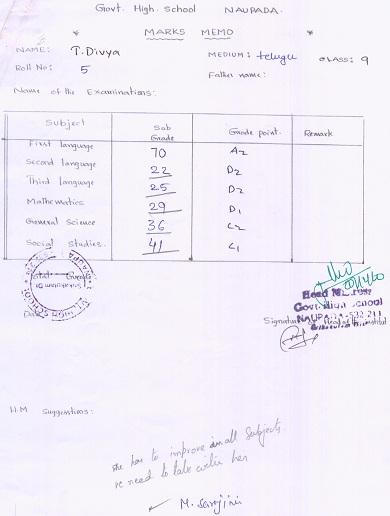 Govt. High. School NAUPADA.
MARKS MEMO
NAME: T. Divya MEDIUM: telugu CLASS: 9
Roll No: 5 Father name:
Name of the Examinations:
Subject Sub Grade Grade point. Remark
First language 70 A2
Second language 22 D2
Third language 25 D2
Mathematics 29 D1
General Science 36 C2
Social Studies. 41 C1
Total Grade
Head
Govt. High School
NAUPADA-532 211
Signature of Head of the institut
H.M Suggestions:
she has to improve in all Subjects.
we need to take with her
M. Sarojini